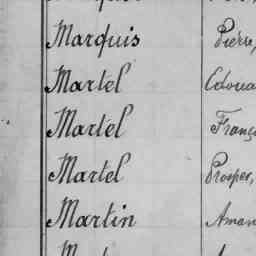 Marquis Pierre,
Martel Edoua
Martel Franç
Martel Prosper,
Martin Aman